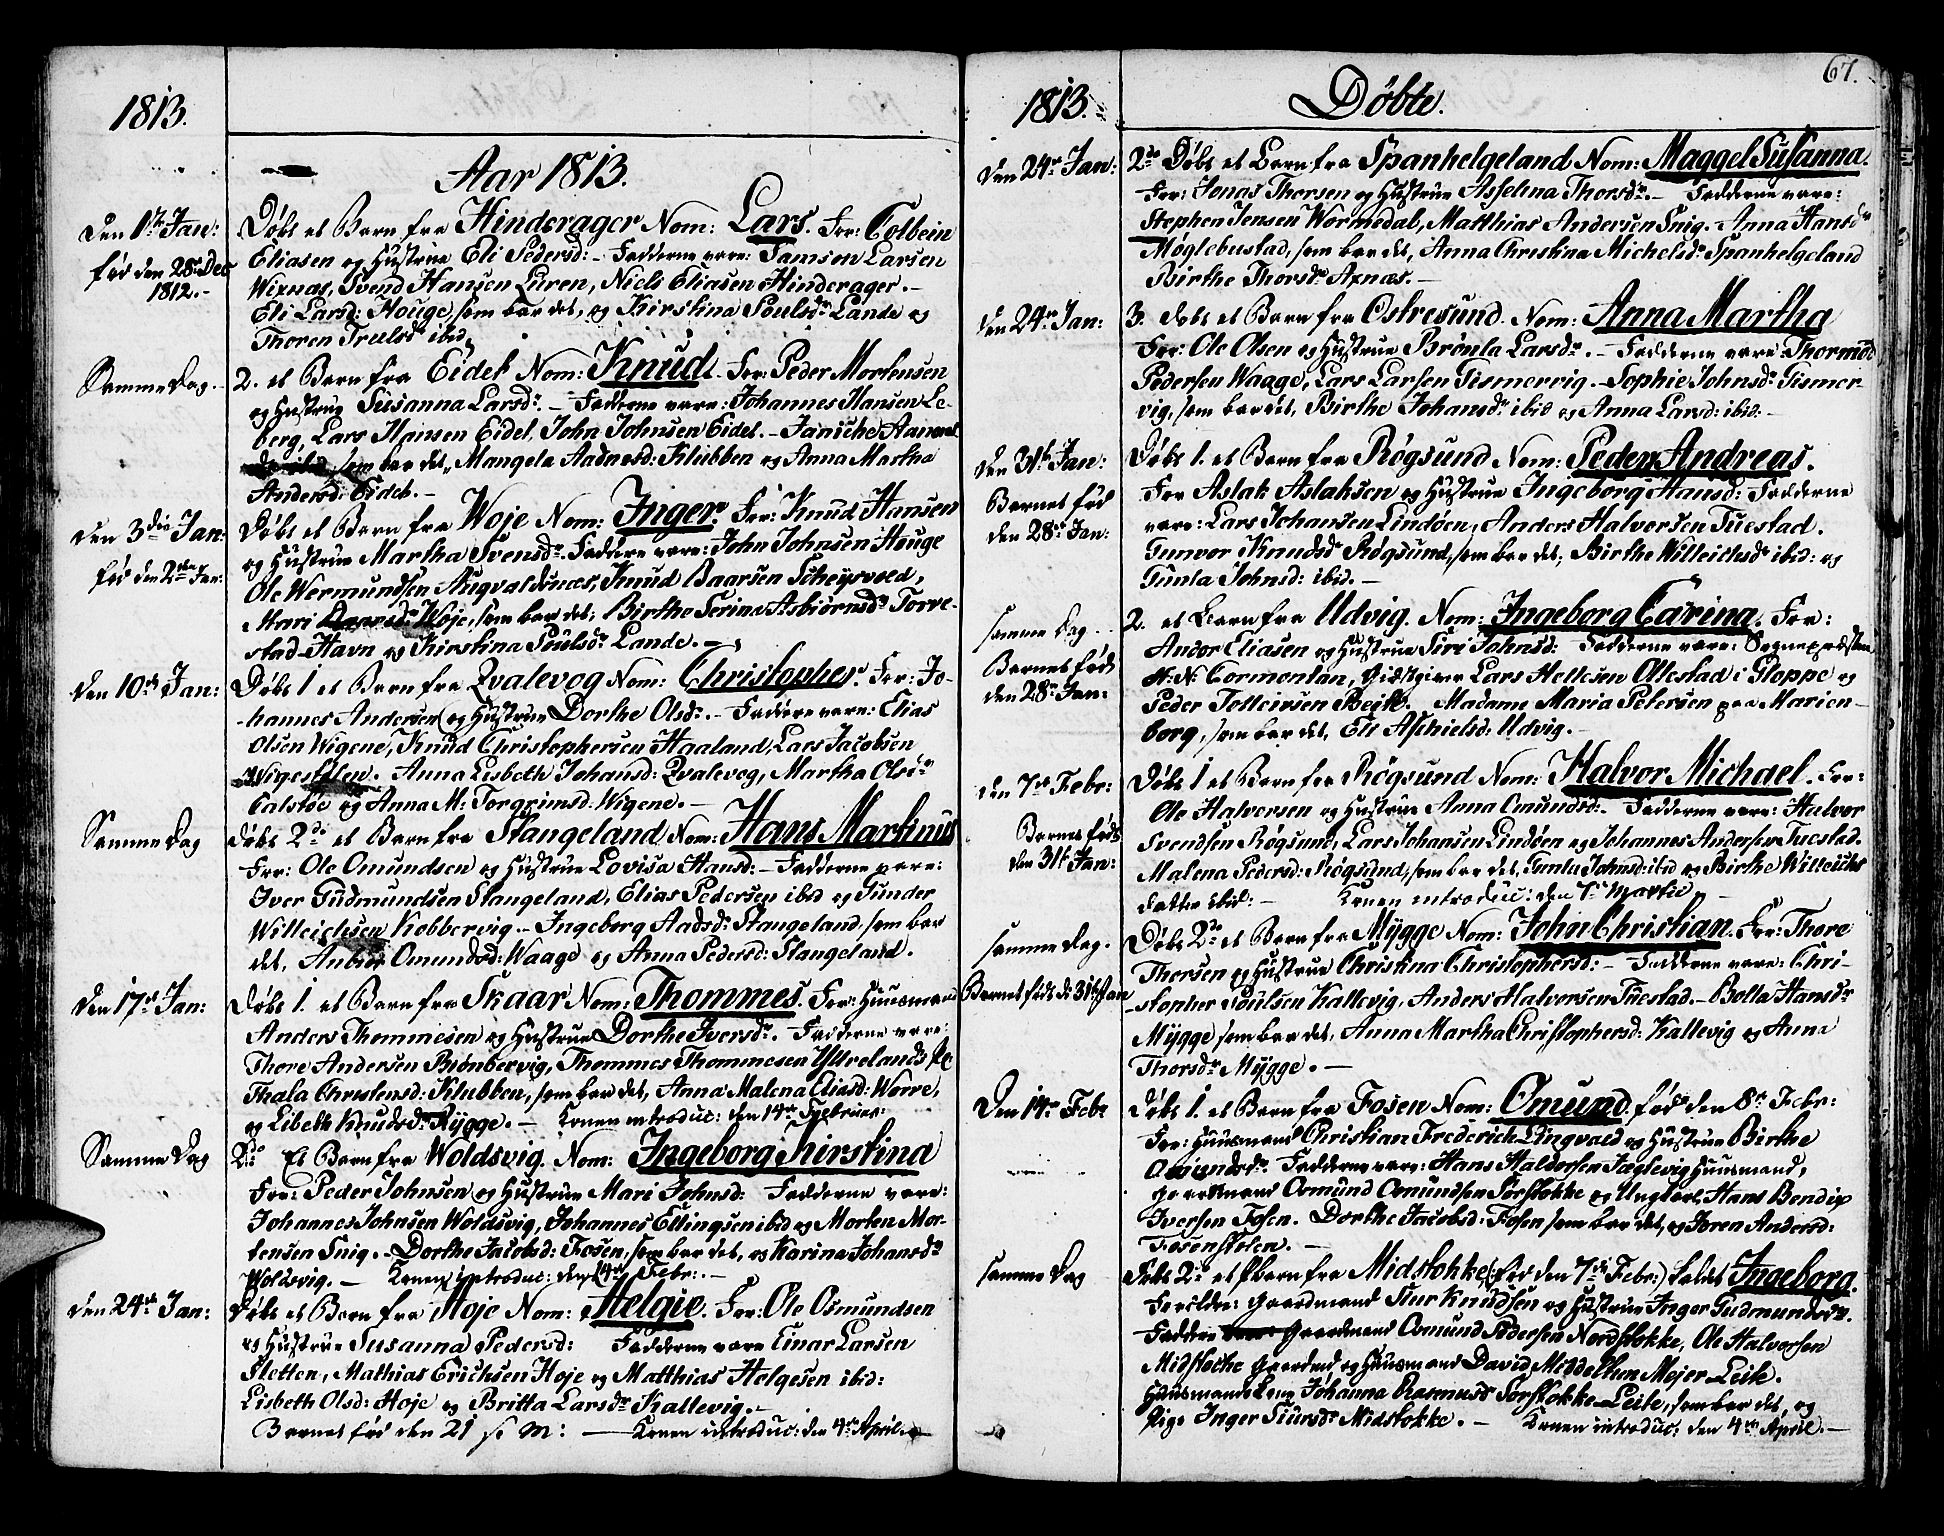 1813.
Aar 1813.
Den 1ste Jan:
Død den 28de Dec
1812.-
Døbt et Barn fra Hinderager Nom: Lars. For: Tolbein
Eliasen og Hustrue Eli Pedersd:- Fadderne vare: Samson Larsen
Wixnæs, Svend Hansen Liren, Niels Eliasen Hinderager.-
Eli Larsd: Houge, som bar det, og Kirstina Poulsdr Lande og
Thoren Truelsdr ibid.
Samme Dag.-
2. et Barn fra Eidet Nom: Knud. For: Peder Mortensen
og Hustrue Susanna Larsdr.- Fadderne vare: Johannes Hansen Le-
berg, Lars Hansen Eidet, John Johnsen Eidet.- Janiche
som bar det, Mangela Aadnesd: Klubben og Anna Martha
Andersd: Eidet.-
Den 3die Jan:
fød den 2den Jan:
Døbt et Barn fra Woje Nom: Inger. For: Knud Hansen
og Hustrue Martha Svensdr. Faddere vare: John Johnsen Houge
Ole Wermundsen Augvaldsnæs, Knud Baarsen Scheysvold,
Mari Baarsdr Woje, som bar det; Birthe Serina Asbiørnsdr Torve-
stad-Havn og Kirstina Poulsdr Lande.-
Den 10de Jan:
Døbt 1 et Barn fra Qvalevog Nom: Christopher. For: Jo-
hannes Andersen og Hustrue Dorthe Olsdr.- Faddere vare: Elias
Olsen Wigene, Knud Christophersen Haaland, Lars Jacobsen
Wigestølen. Anna Lisbeth Johansd: Qvalevog, Martha Olsdr
Calstøe og Anna M: Torgrimsd: Wigene.-
Samme Dag
Døbt 2do et Barn fra Stangeland Nom: Hans Martinus
For: Ole Omundsen og Hustrue Lovisa Hansd:- Fadderne vare:
Iver Gudmundsen Stangeland, Elias Pedersen ibid og Gunder
Willeichsen Kobbervig.- Ingeborg Aadsdr Stangeland, som bar
det, Omundsd: Waage og Anna Pedersd: Stangeland.
Den 17de Jan:
Døbt 1. et Barn fra Skaar Nom: Thommes. For: Huusmand
Anders Thommesen og Hustrue Dorthe Iversdr. Fadderne vare:
Thore Andersen Biønbervig, Thommes Thommesen Ytrelands
Thala Christensd: Klubben, som bar det, Anna Malena Eliasd: Worre,
og Lisbeth Knudsdr Rygge.- Konen introduc: den 14de Februar:
Samme Dag
2do Et Barn fra Woldsvig. Nom: Ingeborg Kirstina
For: Peder Johnsen og Hustrue Mari Johnsd: Fadderne vare:
Johannes Johnsen Woldsvig, Johannes Ellingsen ibid og Morten Mor-
tensen Snig.- Dorthe Jacobsd: Fosen, som bar det, og Karina Johansdr
Woldsvig.- Konen introduc: den 14de Febr:.-
Den 24de Jan:
Døbt et Barn fra Hoje Nom: Helgie. For: Ole Osmundsen
og Hustrue Susanna Pedersd: Fadderne vare Einar Larsen
Sletten, Mathias Erichsen Hoje og Matthias Helgesen ibid:
Lisbeth Olsd: Hoje og Britta Larsdr Kallevig.-
Barnet fød den 21 s. M:- Konen introduc: den 4de April.-
1813.
Døbte.
67.
Den 24de Jan:
2do Døbt et Barn fra Spanhelgeland Nom: Maggel Susanna.
For: Jonas Thorsen og Hustrue Asselina Thorsdr.- Fadderne vare:
Stephen Jensen Wormedal, Matthias Andersen Snig.- Anna Hansdr
Møglebustad, som bar det, Anna Christina Michelsdr Spanhelgeland
Birthe Thorsdr Axnæs.-
Den 24de Jan:
3. Døbt et Barn fra Østresund. Nom: Anna Martha
For: Ole Olsen og Hustrue Brønla Larsdr.- Fadderne vare: Thormod
Pedersen Waage, Lars Larsen Gismervig.- Sophie Johnsdr Gismer-
vig, som bar det, Birthe Johansdr ibid og Anna Larsd: ibid:-
Den 31te Jan:
Barnet fød
den 28de Jan:
Døbt 1. et Barn fra Røgsund Nom: Peder Andreas.
For Aslak Aslaksen og Hustrue Ingeborg Hansd: Fadderne
vare: Lars Johansen Lindøen, Anders Halvorsen Tuestad.
Gunvor Knudsdr Røgsund, som bar det; Birthe Willeichsdr ibid: og
Gunla Johnsd: ibid.-
samme Dag...
Barnet fød
den 28de Jan:
2. et Barn fra Udvig. Nom: Ingeborg Carina. For:
Andor Eliasen og Hustrue Siri Johnsd: Fadderne vare: Sognepræsten
H: N: Tormontan, Giæstgiver Lars Hellesen Ollestad i Gloppe og
Peder Tolleivsen Beik. Madame Maria Petersen paa Marien-
borg, som bar det, Eli Aschielsd: Udvig.-
Den 7de Febr:
Barnet født
den 31te Jan:
Døbt 1 et Barn fra Røgsund Nom: Halvor Michael. For:
Ole Halvorsen og Hustrue Anna Omundsd:- Fadderne vare: Halvor
Svendsen Røgsund, Lars Johansen Lindøen og Johannes Andersen Tuestad.
Malena Pedersd: Røgsund, som bar det, Gunla Johnsd: ibid og Birthe Willeichs
datter ibid:- Konen introduc: den 7de Martii
samme Dag.
Barnet født d: 31te Jan
Døbt 2do et Barn fra Mygge Nom: John Christian. For: Thore
Thorsen og Hustrue Christina Christophersd:- Fadderne vare: Chri-
stopher Poulsen Kallevig, Anders Halvorsen Tuestad.- Bolla Hansdr
Mygge som bar det, Anna Martha Christophersd: Kallevig og Anna
Thorsdr Mygge.-
Den 14de Febr
Døbt 1. et Barn fra Fosen Nom: Omund, fød den 8de Febr:
For: Huusmand Christian Frederich Lingvald og Hustrue Birthe
Omundsdr. Fadderne vare: Hans Haldorsen Fæglevig Huusmand,
Gaardmand Osmund Osmundsen Sørstokke og Ungkarl Hans Bendix
Iversen Fosen. Dorthe Jacobsd: Fosen som bar det, og Joren Andersd:
Fosenstølen.-
samme Dag
Døbt 2do et Barn fra Midstokke (fød den 7de Febr:) kaldt Ingeborg.
Forældre: Gaardmand Siur Knudsen og Hustrue Inger Gudmundsdr.
Faddere Gaardmand Osmund Pedersen Nordstokke, Ole Halvorsen
Midstocke Gaardmd og Huusmand David Middelthun Mejer Leite.
Huusmands Kone Johanna Rasmusdr Sørstokke-Leite, som bar det, og
Pige Inger Siursdr Midstokke.- Konen introduc: den 4de April.-